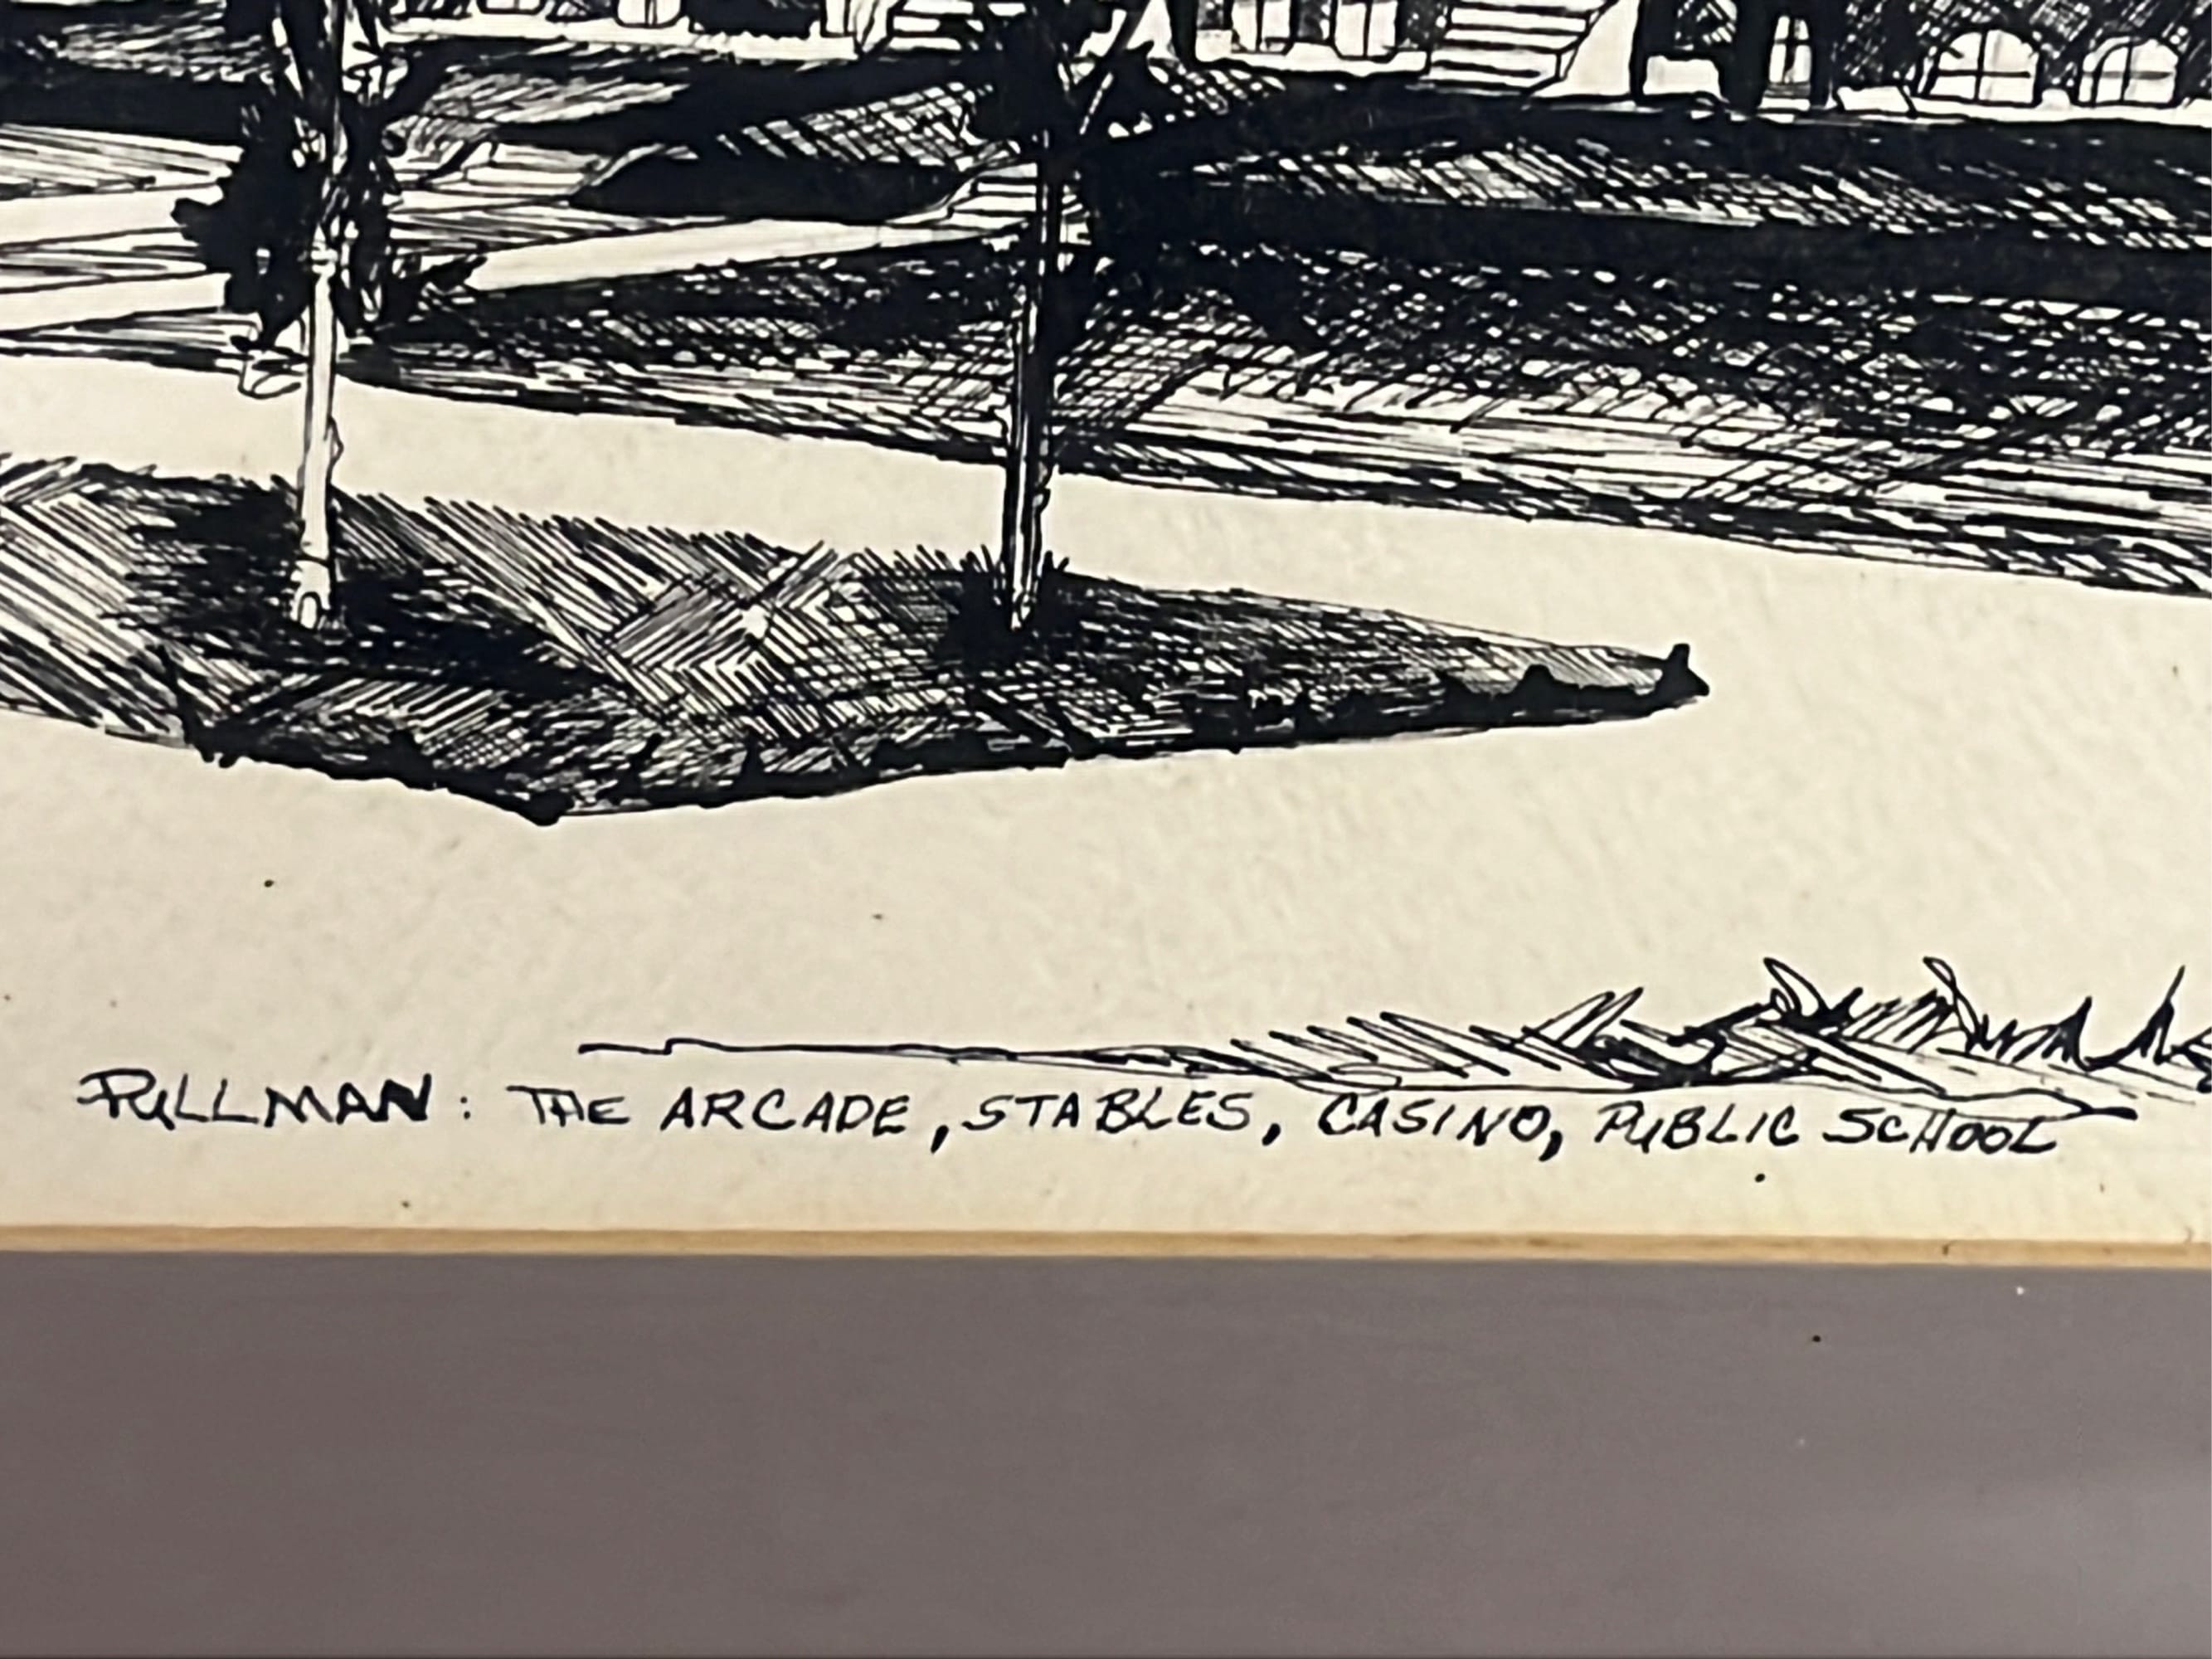 PULLMAN: THE ARCADE, STABLES, CASINO, PUBLIC SCHOOL